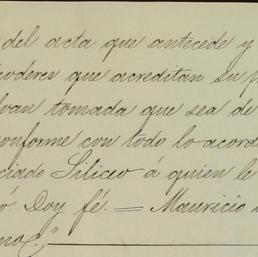 del acta que antecede y
poderes que acreditan su p
van tomada que sea de
conforme con todo lo acord
ciado Siliceo á quien le
ó. Doy fé. = Mauricio